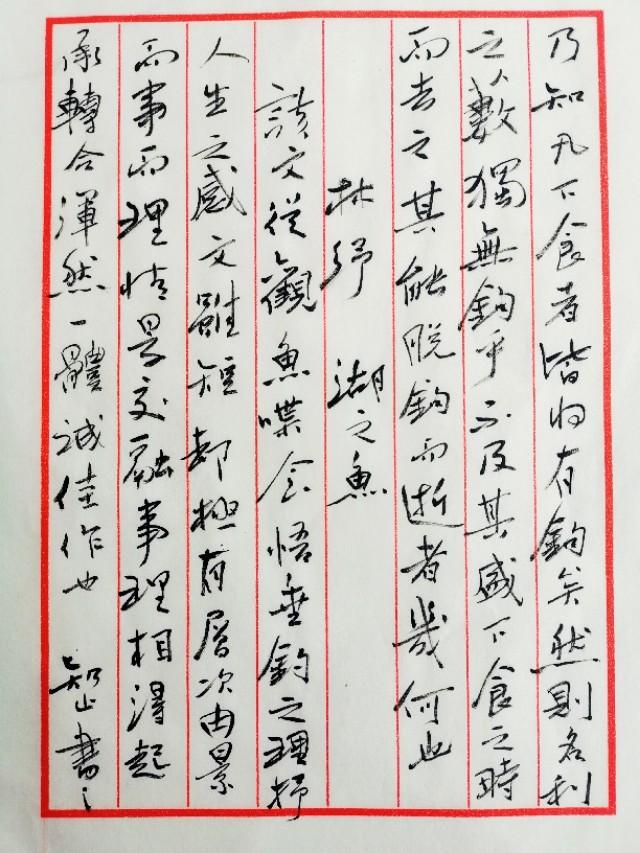 乃知凡下食者皆将有鈎矣然則名利
之藪獨無鈎乎不及其盛下食之時
而去之其能脱鈎而逝者幾何也
林纾 湖之魚
讀文從觀魚喋会悟垂釣之理抒
人生之感文雖短却極有層次由景
而事而理情景交融事理相得起
承轉合渾然一體誠佳作也 智山書